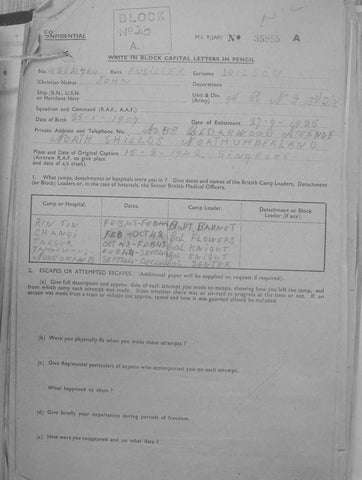 BLOCK
No 20
A.
CONFIDENTIAL
M.I. 9/JAP/ No 35965 A
WRITE IN BLOCK CAPITAL LETTERS IN PENCIL
No. Rank FUSILIER Surname WILSON
Christian Names JOHN Decorations
Ship (R.N., U.S.N. or Merchant Navy) Unit & Div. (Army) 9th R. N. F. 18th DIV
Squadron and Command (R.A.F., A.A.F.)
Date of Birth 25-1-1907 Date of Enlistment 27-9-1925
Private Address and Telephone No. CEDARWOOD AVENUE
NORTH SHIELDS NORTHUMBERLAND
Place and Date of Original Capture 15-2-1942 SINGAPORE
(Aircrew R.A.F. to give place and date of a/c crash).
1. What camps, detachments or hospitals were you in? Give dates and names of the British Camp Leaders, Detachment
(or Block) Leaders or, in case of hospitals, the Senior British Medical Officers.
Camp or Hospital. Dates. Camp Leader. Detachment or Block Leader (if any).
KIN TIN BARNET
CHANGI FEB - OCT 42 Col FLOWERS
TARSUR OCT 42 - FEB 43 Col KNIGHT
Col KNIGHT
2. ESCAPES OR ATTEMPTED ESCAPES. (Additional paper will be supplied on request if required).
(a) Give full description and approx. date of each attempt you made to escape, showing how you left the camp, and
from which camp each attempt was made. State whether there was an air-raid in progress at the time or not. If an
escape was made from a train or vehicle the approx. speed and how it was guarded should be included.
(b) Were you physically fit when you made these attempts?
(c) Give Regimental particulars of anyone who accompanied you on each attempt.
What happened to them?
(d) Give briefly your experiences during periods of freedom.
(e) How were you recaptured and on what date?